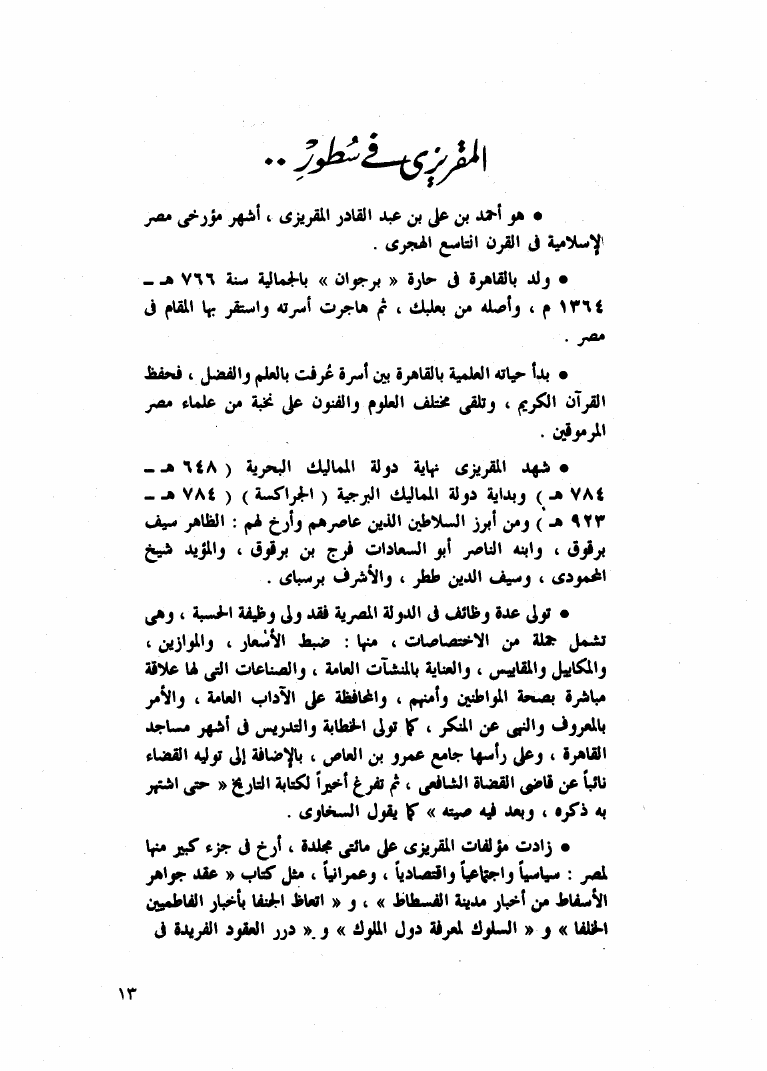 المقريزى فى سُطورْ ..
● هو أحمد بن على بن عبد القادر المقريزى ، أشهر مؤرخى مصر
الإسلامية فى القرن التاسع الهجرى .
● ولد بالقاهرة فى حارة « برجوان » بالجمالية سنة ٧٦٦ هـ ــ
١٣٦٤ م ، وأصله من بعلبك ، ثم هاجرت أسرته واستقر بها المقام فى
مصر .
● بدأ حياته العلمية بالقاهرة بين أسرة عُرفت بالعلم والفضل ، فحفظ
القرآن الكريم ، وتلقى مختلف العلوم والفنون على نخبة من علماء مصر
المرموقين .
● شهد المقريزى نهاية دولة المماليك البحرية ( ٦٤٨ هـ ــ
٧٨٤ هـ ) وبداية دولة المماليك البرجية ( الجراكسة ) ( ٧٨٤ هـ ــ
٩٢٣ هـ ) ومن أبرز السلاطين الذين عاصرهم وأرخ لهم : الظاهر سيف
برقوق ، وابنه الناصر أبو السعادات فرج بن برقوق ، والمؤيد شيخ
المحمودى ، وسيف الدين ططر ، والأشرف برسباى .
● تولى عدة وظائف فى الدولة المصرية فقد ولى وظيفة الحسبة ، وهى
تشمل جملة من الاختصاصات ، منها : ضبط الأسعار ، والموازين ،
والمكاييل والمقاييس ، والعناية بالمنشآت العامة ، والصناعات التى لها علاقة
مباشرة بصحة المواطنين وأمنهم ، والمحافظة على الآداب العامة ، والأمر
بالمعروف والنهى عن المنكر ، كما تولى الخطابة والتدريس فى أشهر مساجد
القاهرة ، وعلى رأسها جامع عمرو بن العاص ، بالإضافة إلى توليه القضاء
نائباً عن قاضى القضاة الشافعى ، ثم تفرغ أخيراً لكتابة التاريخ « حتى اشتهر
به ذكره ، وبعد فيه صيته » كما يقول السخاوى .
● زادت مؤلفات المقريزى على مائتى مجلدة ، أرخ فى جزء كبير منها
لمصر : سياسياً واجتماعياً واقتصادياً ، وعمرانياً ، مثل كتاب « عقد جواهر
الأسفاط من أخبار مدينة الفسطاط » ، و « اتعاظ الحنفا بأخبار الفاطميين
الخلفا » و « السلوك لمعرفة دول الملوك » و « درر العقود الفريدة فى
١٣